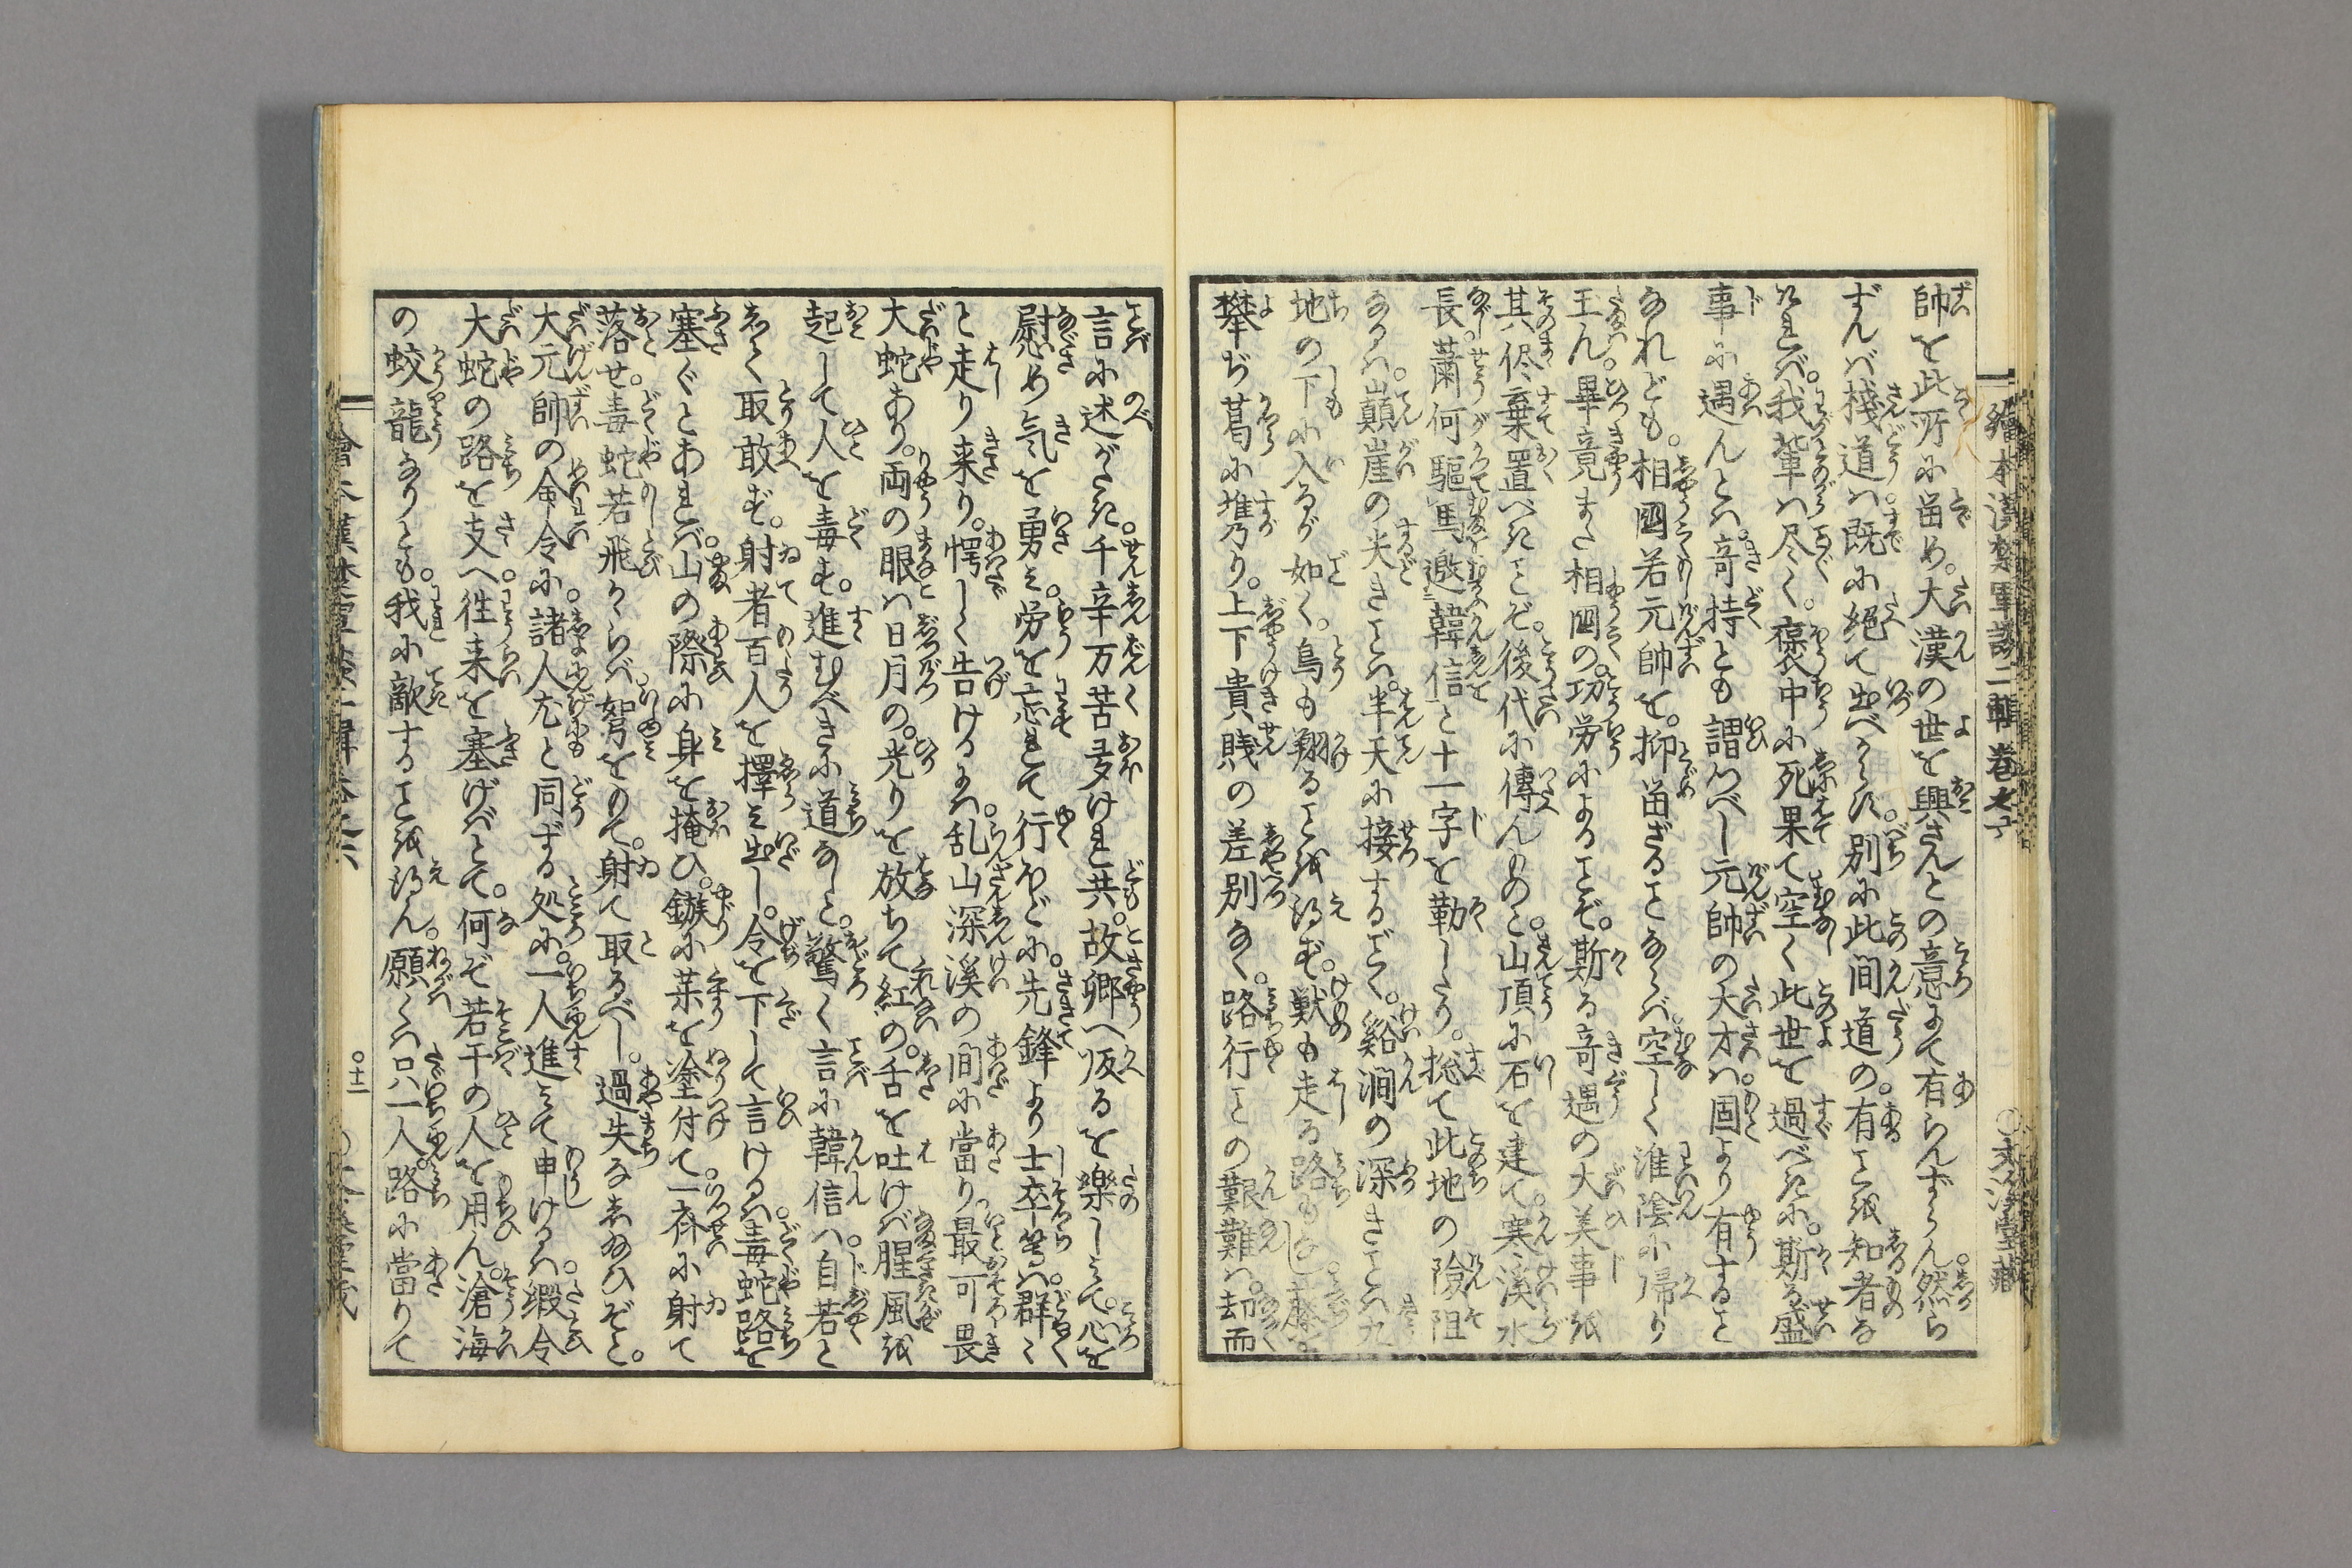 帥を此所に留め。大漢の世を興さんとの意にて有らんずらん。然ら
ずんバ棧道ハ既に絶て出べからず。別に此間道の。有ことを知者な
ければ。我輩ハ尽く。褒中に死果て空く此世を過べきに。斯る盛
事に遇んとハ。奇持とも謂つべし元帥の大才ハ。固より有すること
なれども。相國若元帥を。抑留ざることならバ。空しく淮陰に帰り
玉ん。畢竟また相國の。功労によることぞ。斯る奇遇の大美事を
其侭棄置べきことぞ。後代に傳んのと。山頂に石を建て。寒溪水
長。蕭何驅馬邀韓信と十一字を勒したり。捴て此地の險阻
なるハ。巓崖の尖きことハ。半天に接するごとく。谿澗の深きことハ九
地の下に入るが如く。鳥も翔ることを得ず。獣も走る路もなし藤
攀ぢ葛に堆乃り。上下貴賎の差別なく。路行ことの艱難ハ。却而
繪本漢楚軍談二輯巻之六
〇文渓堂藏
言に述がたく。千辛万苦多けれ共。故郷へ皈るを樂しみて。心を
慰め気を勇み。労を忘れて行ほどに。先鋒より士卒等ハ。群〻
と走り来り。愕しく告けるハ。乱山深溪の間に當り。最可畏
大蛇あり。両の眼ハ日月の。光りを放ちて紅の。舌を吐けバ腥風を
起して人を毒す。進むべきに道なしと。驚く言に韓信ハ。自若と
して取敢ず。射者百人を擇み出し。令を下して言けるハ毒蛇路を
塞ぐとあれバ。山の際に身を掩ひ。鏃に薬を塗付て。一斉に射て
落せ。毒蛇若飛からバ。弩をもて。射て取るべし。過失なしたまひぞと。
大元帥の命令に。諸人尤と同ずる処に。一人進みて申けるハ。縦令
大蛇の路を支へ。徃来を塞げバとて。何ぞ若干の人を用ん。滄海
の蛟龍なりとも。我に敵することを得ん。願くハ只一人。路に當りて
〇十二